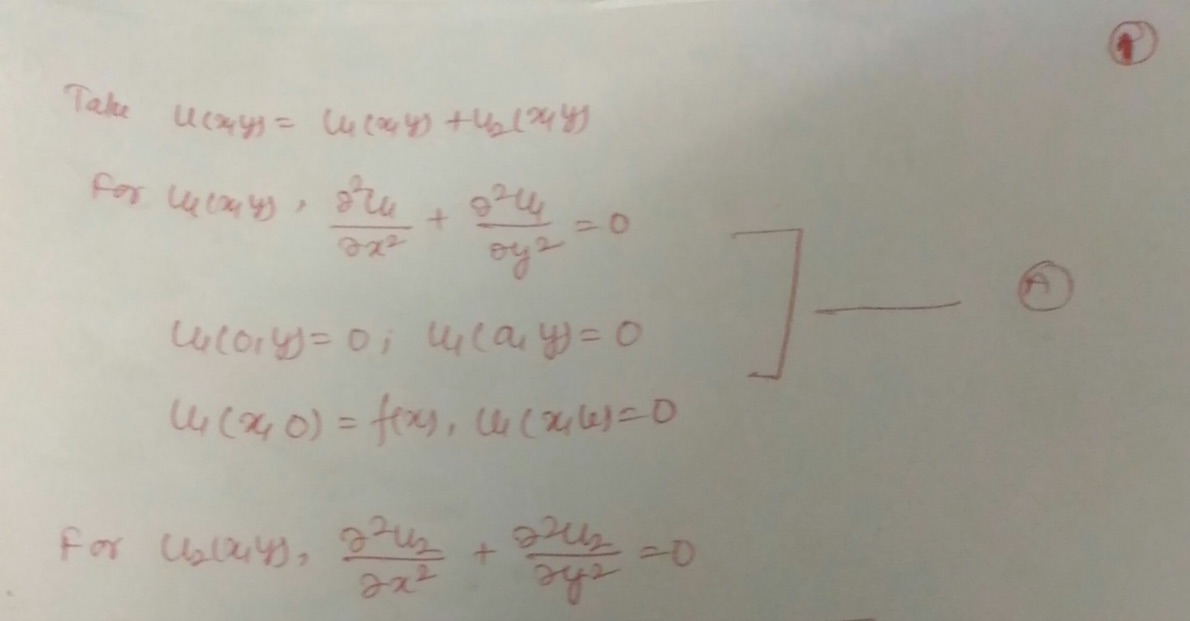 1
Take u(x,y) = u₁(x,y) + u₂(x,y)
For u₁(x,y), ∂²u₁/∂x² + ∂²u₁/∂y² = 0
A
u₁(0,y) = 0; u₁(a,y) = 0
u₁(x,0) = f(x), u₁(x,b) = 0
For u₂(x,y), ∂²u₂/∂x² + ∂²u₂/∂y² = 0